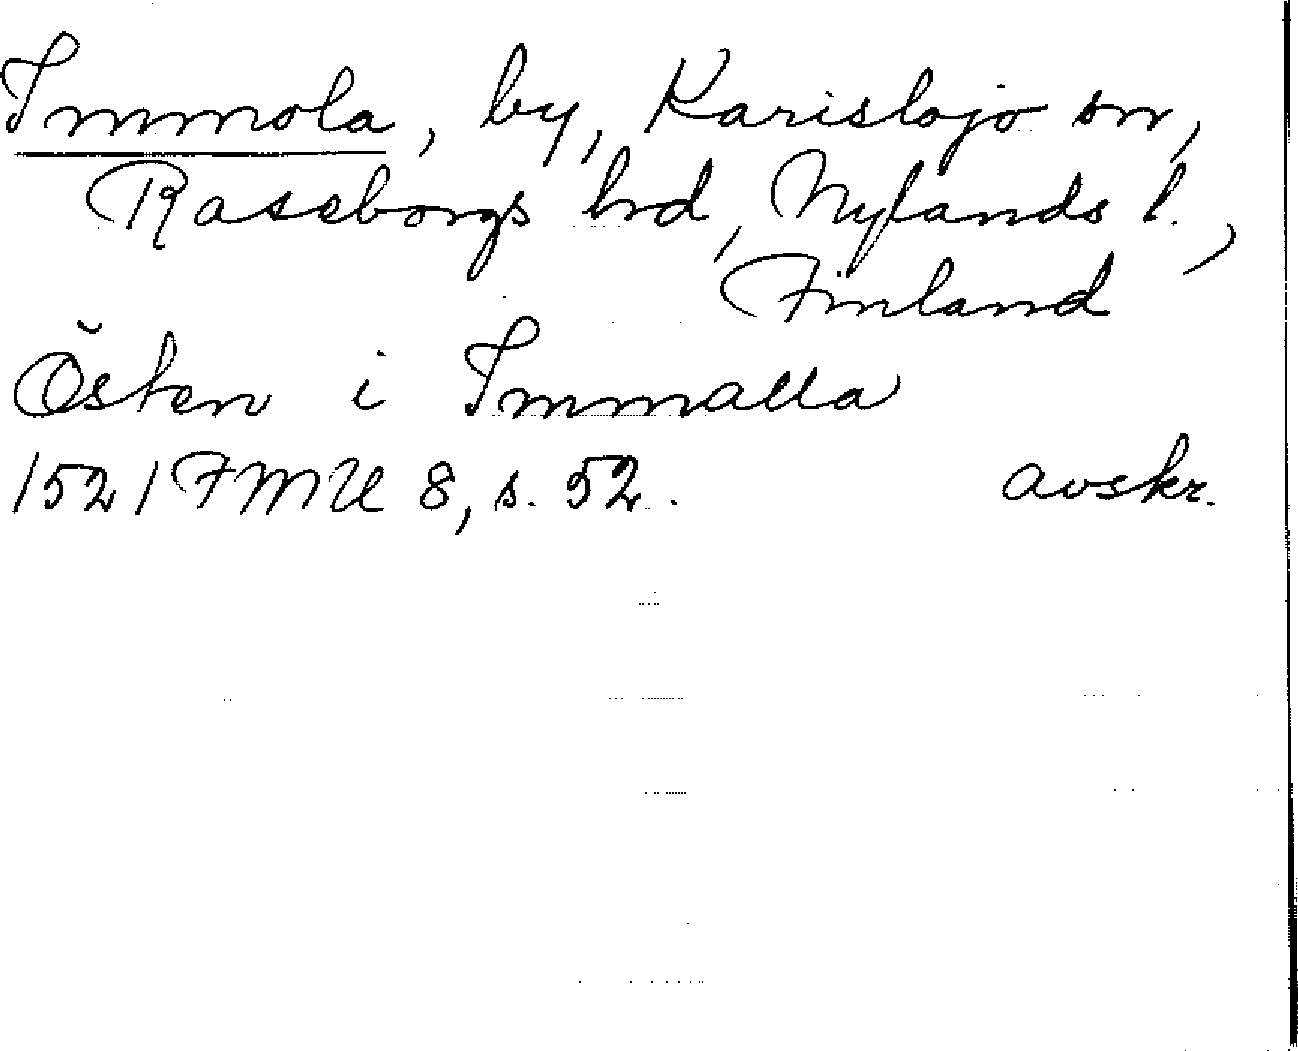 Immola, by, Karislojo sn,
Raseborgs hrd, Nylands l.,
Finland
Östen i Immalla
1521 FMU 8, s. 52. avskr.